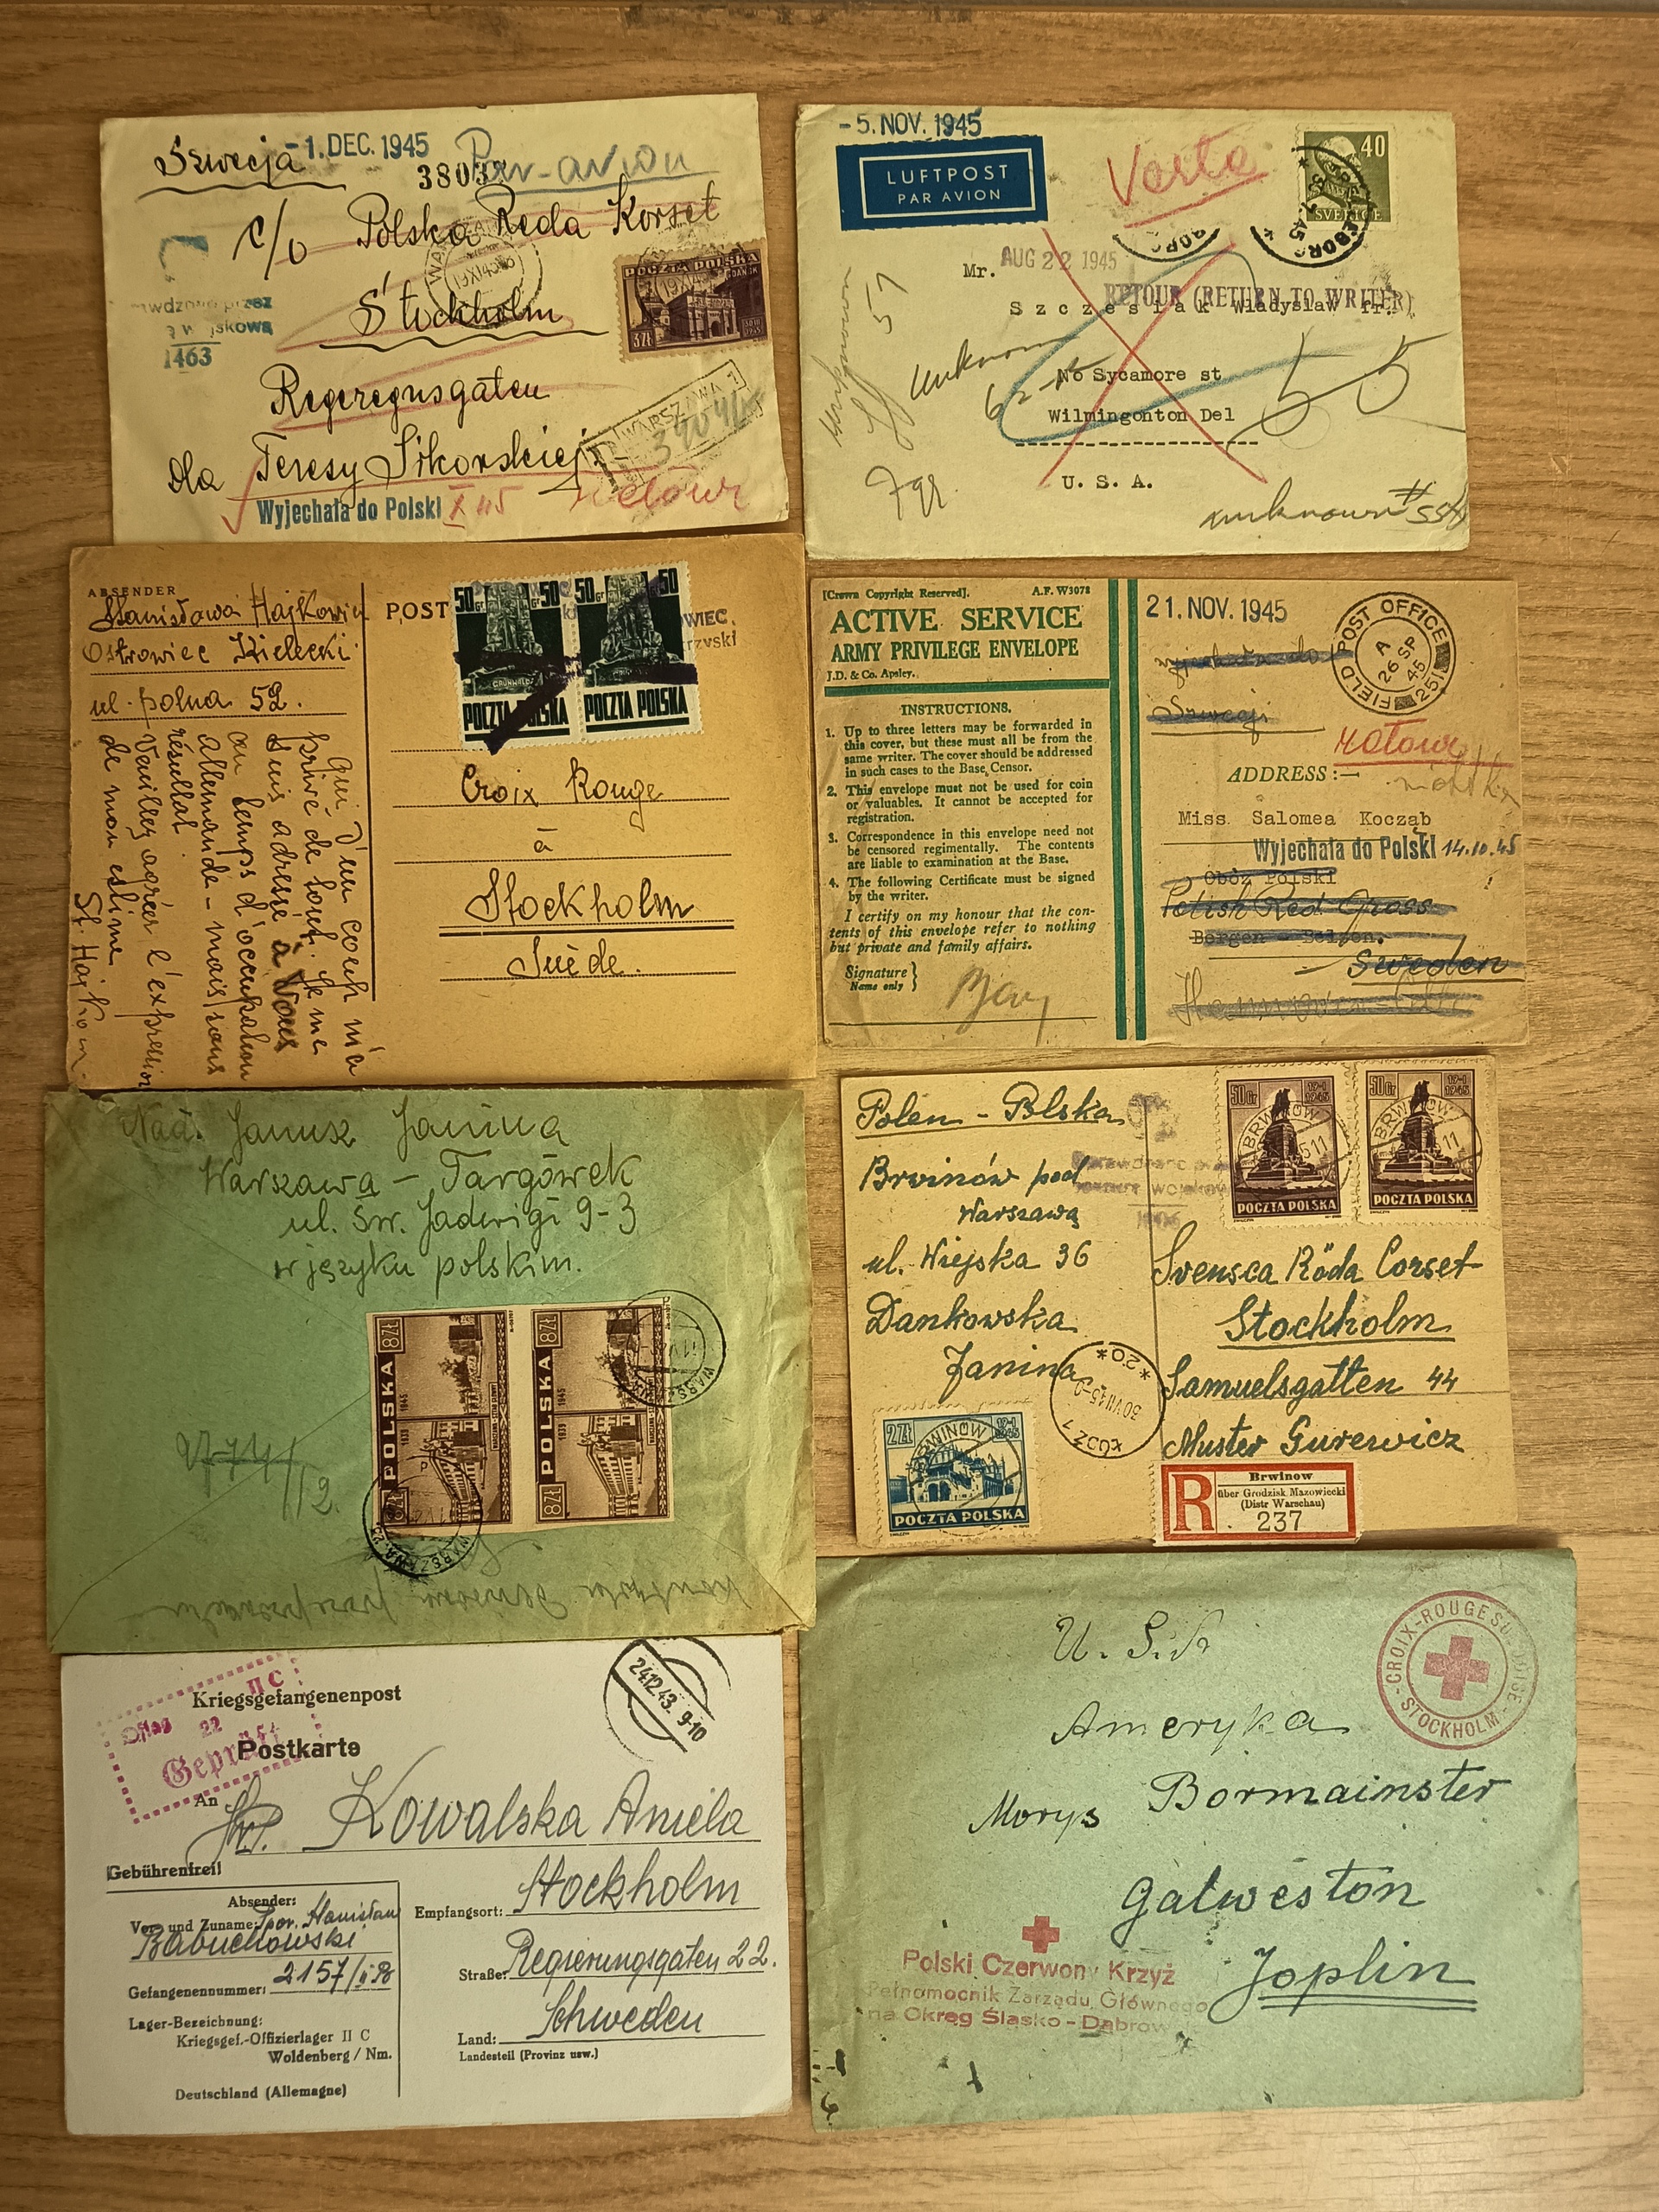 Szwecja
- 1. DEC. 1945
Par-avion
3803
c/o Polska Reda Korset
Stockholm
POCZTA POLSKA
GDAŃSK
3 ZŁ
19 XI 45
1463
Regeregnsgaten
dla Teresy Sikorskiej
WARSZAWA 1
Wyjechała do Polski X 45 retour
- 5. NOV. 1945
LUFTPOST
PAR AVION
Vorta
40
SVERIGE
Mr. AUG 22 1945
RETOUR (RETURN TO WRITER)
Szczesiak Wladyslaw fr.
57
unknown
No Sycamore st
55
Wilmingonton Del
U. S. A.
unknown
ABSENDER
Stanisława Hajkowicz
Ostrowiec Kielecki
ul. polna 52.
POST
50 Gr 50 50 Gr 50
GRUNWALD
POCZTA POLSKA POCZTA POLSKA
WIEC.
Croix Rouge
à
Stockholm
Suède.
Qui d'un coup m'a
privé de tout. Je me
suis adressé à Vous
au temps d'occupation
allemande - mais sans
résultat.
Veuillez agréer l'expression
de mon estime
St. Hajkow.
[Crown Copyright Reserved]. A.F. W3078
ACTIVE SERVICE
ARMY PRIVILEGE ENVELOPE
J.D. & Co. Apsley.
INSTRUCTIONS.
1. Up to three letters may be forwarded in
this cover, but these must all be from the
same writer. The cover should be addressed
in such cases to the Base Censor.
2. This envelope must not be used for coin
or valuables. It cannot be accepted for
registration.
3. Correspondence in this envelope need not
be censored regimentally. The contents
are liable to examination at the Base.
4. The following Certificate must be signed
by the writer.
I certify on my honour that the con-
tents of this envelope refer to nothing
but private and family affairs.
Signature }
Name only }
21. NOV. 1945
FIELD POST OFFICE
A
26 SP
45
251
wyjechała do
Szwecji
ADDRESS :—
Miss Salomea Kocząb
Wyjechała do Polski 14.10.45
Obóz Polski
Polish Red Cross
Bergen - Belsen.
Sweden
Nad. Janusz Janina
Warszawa - Targówek
ul. Św. Jadwigi 9-3
w języku polskim.
8 ZŁ POLSKA 8 ZŁ
1939 1945
8 ZŁ POLSKA 8 ZŁ
1939 1945
Polen - Polska
Brwinów pod
Warszawą
ul. Wiejska 36
Dankowska
Janina
50 Gr 17-I 1945
BRWINÓW
POCZTA POLSKA
50 Gr 17-I 1945
BRWINÓW
POCZTA POLSKA
Svensca Röda Corset
Stockholm
Samuelsgatten 44
Muster Gurewicz
ŁÓDŹ 1
30 VII 45
*20*
2 Zł 17-I 1945
BRWINÓW
POCZTA POLSKA
R
Brwinow
über Grodzisk Mazowiecki
(Distr Warschau)
237
Kriegsgefangenenpost
Postkarte
II C
Oflag 22
Geprüft
24.12.43. 9-10
An Kowalska Aniela
Gebührenfrei!
Absender:
Vor- und Zuname: Ppor. Stanisław
Babuchowski
Gefangenennummer: 2157/II B
Lager-Bezeichnung:
Kriegsgef.-Offizierlager II C
Woldenberg / Nm.
Deutschland (Allemagne)
Empfangsort: Stockholm
Straße: Regierungsgaten 22.
Land: Schweden
Landesteil (Provinz usw.)
CROIX-ROUGE SUÉDOISE
STOCKHOLM
U. S. A
Ameryka
Morys Bormainster
Galweston
Joplin
Polski Czerwony Krzyż
Pełnomocnik Zarządu Głównego
na Okręg Śląsko-Dąbrow